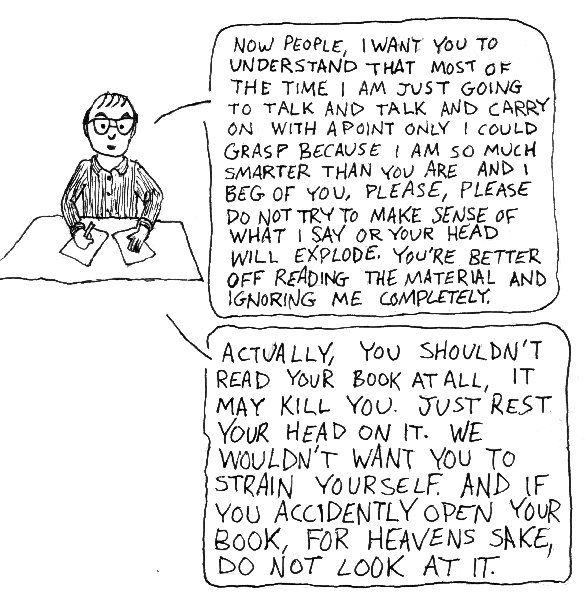 NOW PEOPLE, I WANT YOU TO
UNDERSTAND THAT MOST OF
THE TIME I AM JUST GOING
TO TALK AND TALK AND CARRY
ON WITH A POINT ONLY I COULD
GRASP BECAUSE I AM SO MUCH
SMARTER THAN YOU ARE AND I
BEG OF YOU, PLEASE, PLEASE
DO NOT TRY TO MAKE SENSE OF
WHAT I SAY OR YOUR HEAD
WILL EXPLODE. YOU'RE BETTER
OFF READING THE MATERIAL AND
IGNORING ME COMPLETELY.
ACTUALLY, YOU SHOULDN'T
READ YOUR BOOK AT ALL, IT
MAY KILL YOU. JUST REST
YOUR HEAD ON IT. WE
WOULDN'T WANT YOU TO
STRAIN YOURSELF. AND IF
YOU ACCIDENTLY OPEN YOUR
BOOK, FOR HEAVENS SAKE,
DO NOT LOOK AT IT.